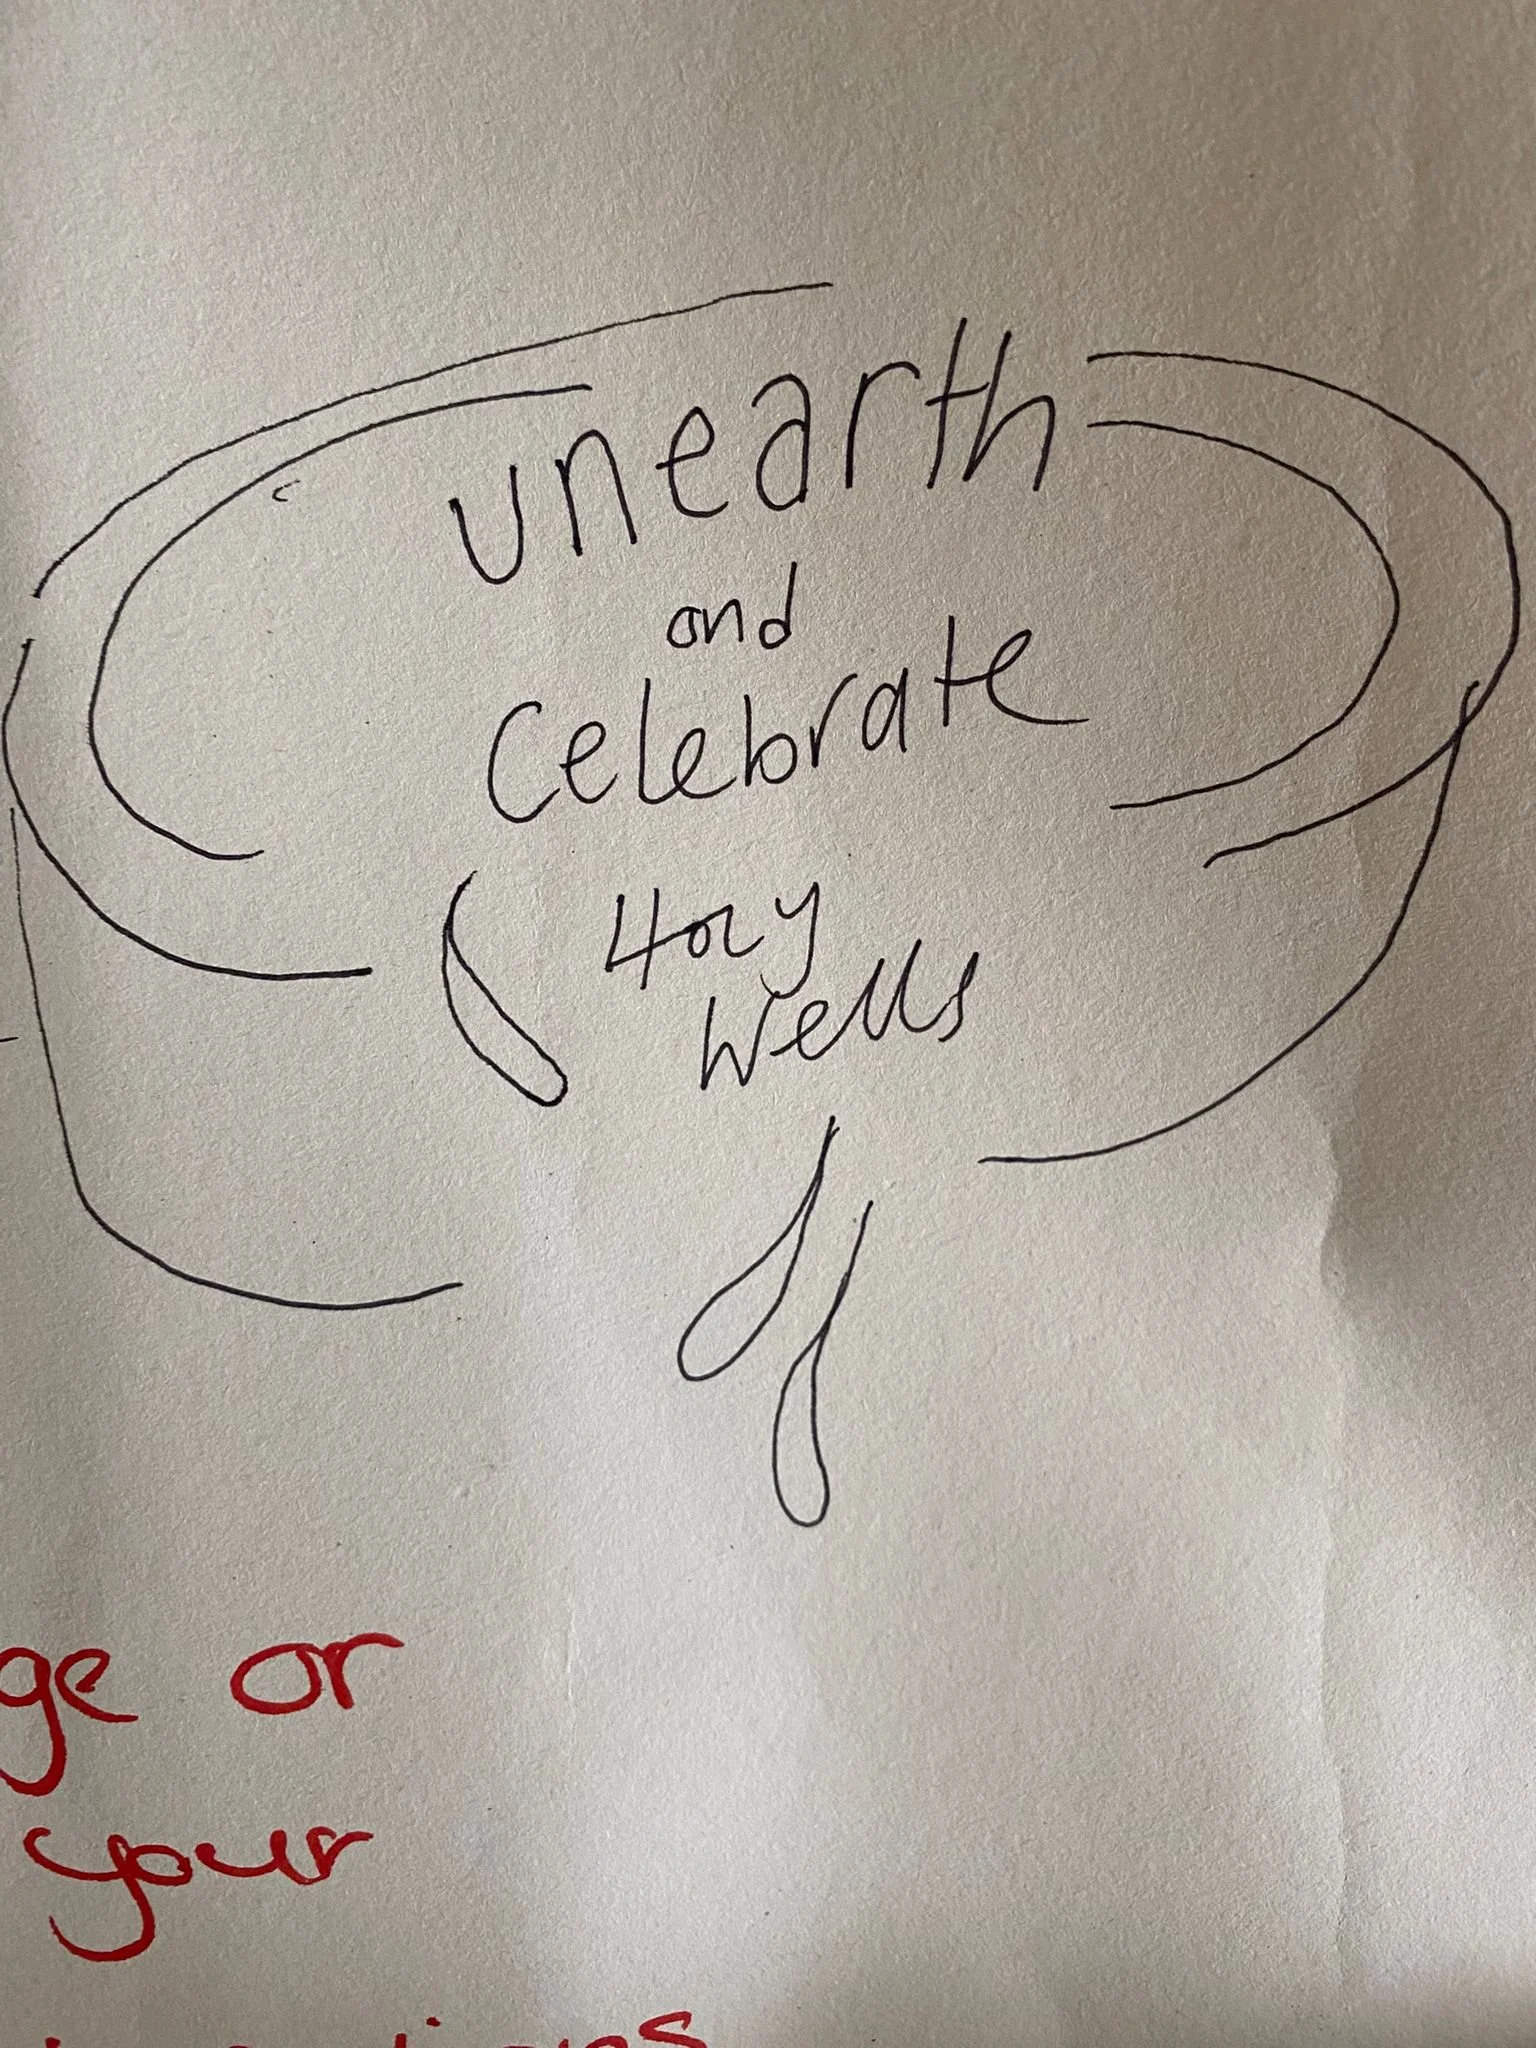 unearth
and
Celebrate
Holy
Wells
ge or
your